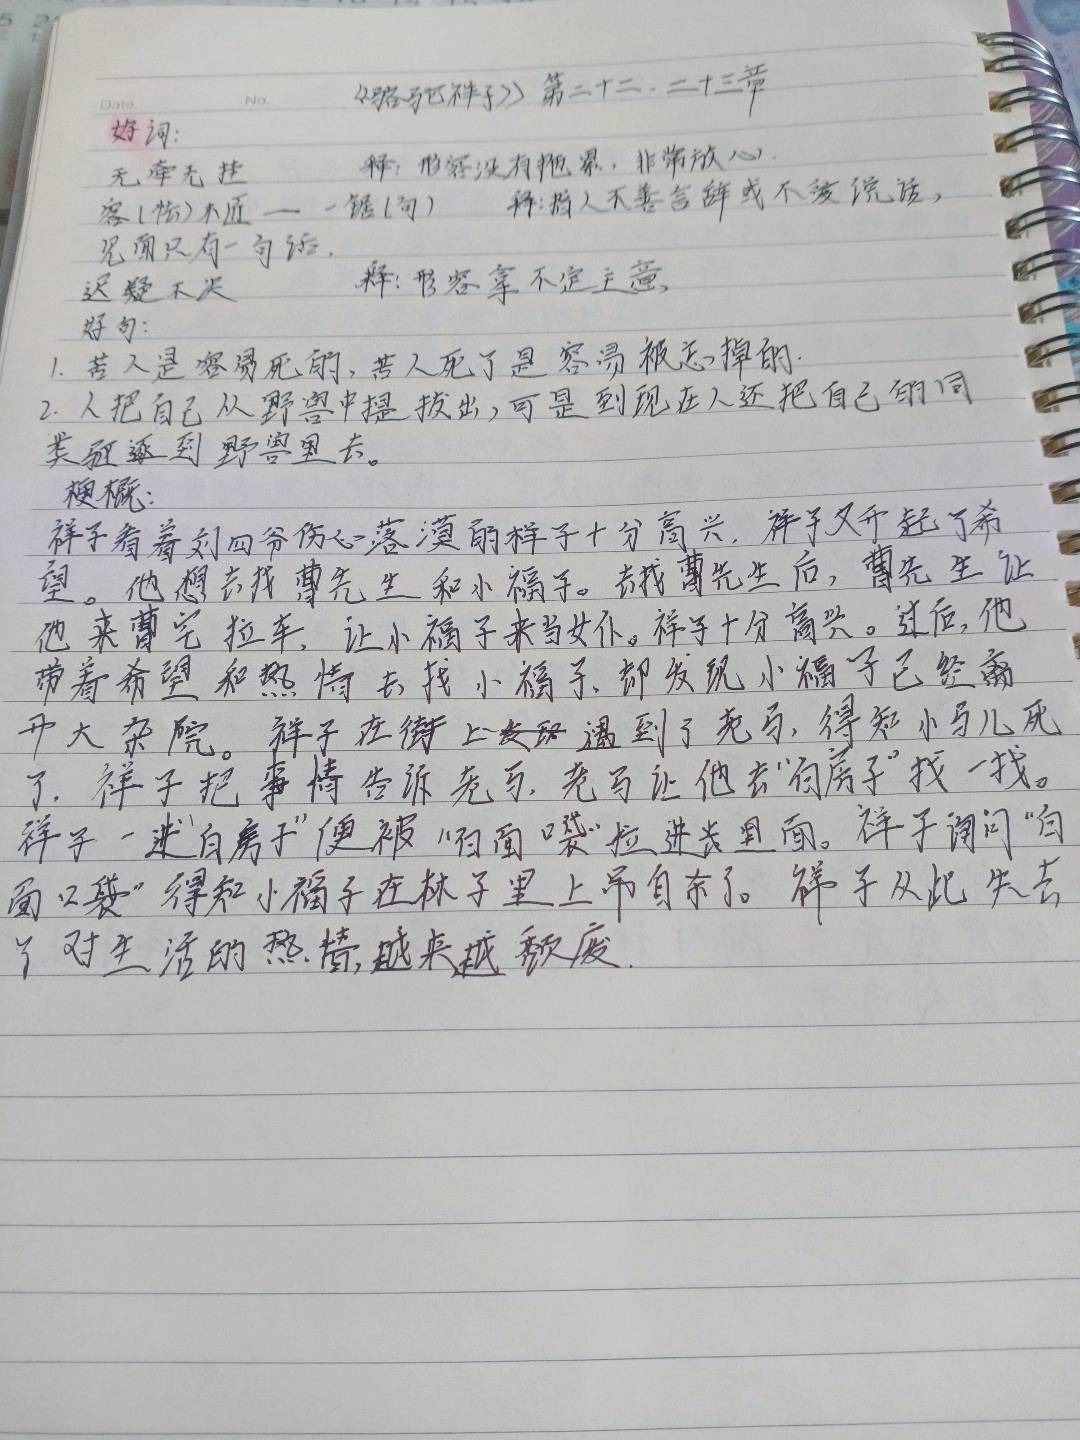 《骆驼祥子》第二十二.二十三章
Date.
No.
好词:
无牵无挂 释:形容没有拖累,非常放心.
客(怯)木匠——一锯(句) 释:指人不善言辞或不爱说话,
见面只有一句话.
迟疑不决 释:形容拿不定主意,
好句:
1. 苦人是容易死的,苦人死了是容易被忘掉的.
2. 人把自己从野兽中提拔出,可是到现在人还把自己的同
类驱逐到野兽里去。
梗概:
祥子看着刘四爷伤心落漠的样子十分高兴.祥子又升起了希
望。他想去找曹先生和小福子。去找曹先生后,曹先生让
他来曹宅拉车,让小福子来当女仆。祥子十分高兴。过后,他
带着希望和热情去找小福子,却发现小福子已经离
开大杂院。祥子在街上遇到了老马,得知小马儿死
了.祥子把事情告诉老马,老马让他去"白房子"找一找。
祥子一进"白房子"便被"白面口袋"拉进去里面。祥子询问"白
面口袋"得知小福子在林子里上吊自杀了。祥子从此失去
了对生活的热情,越来越颓废.